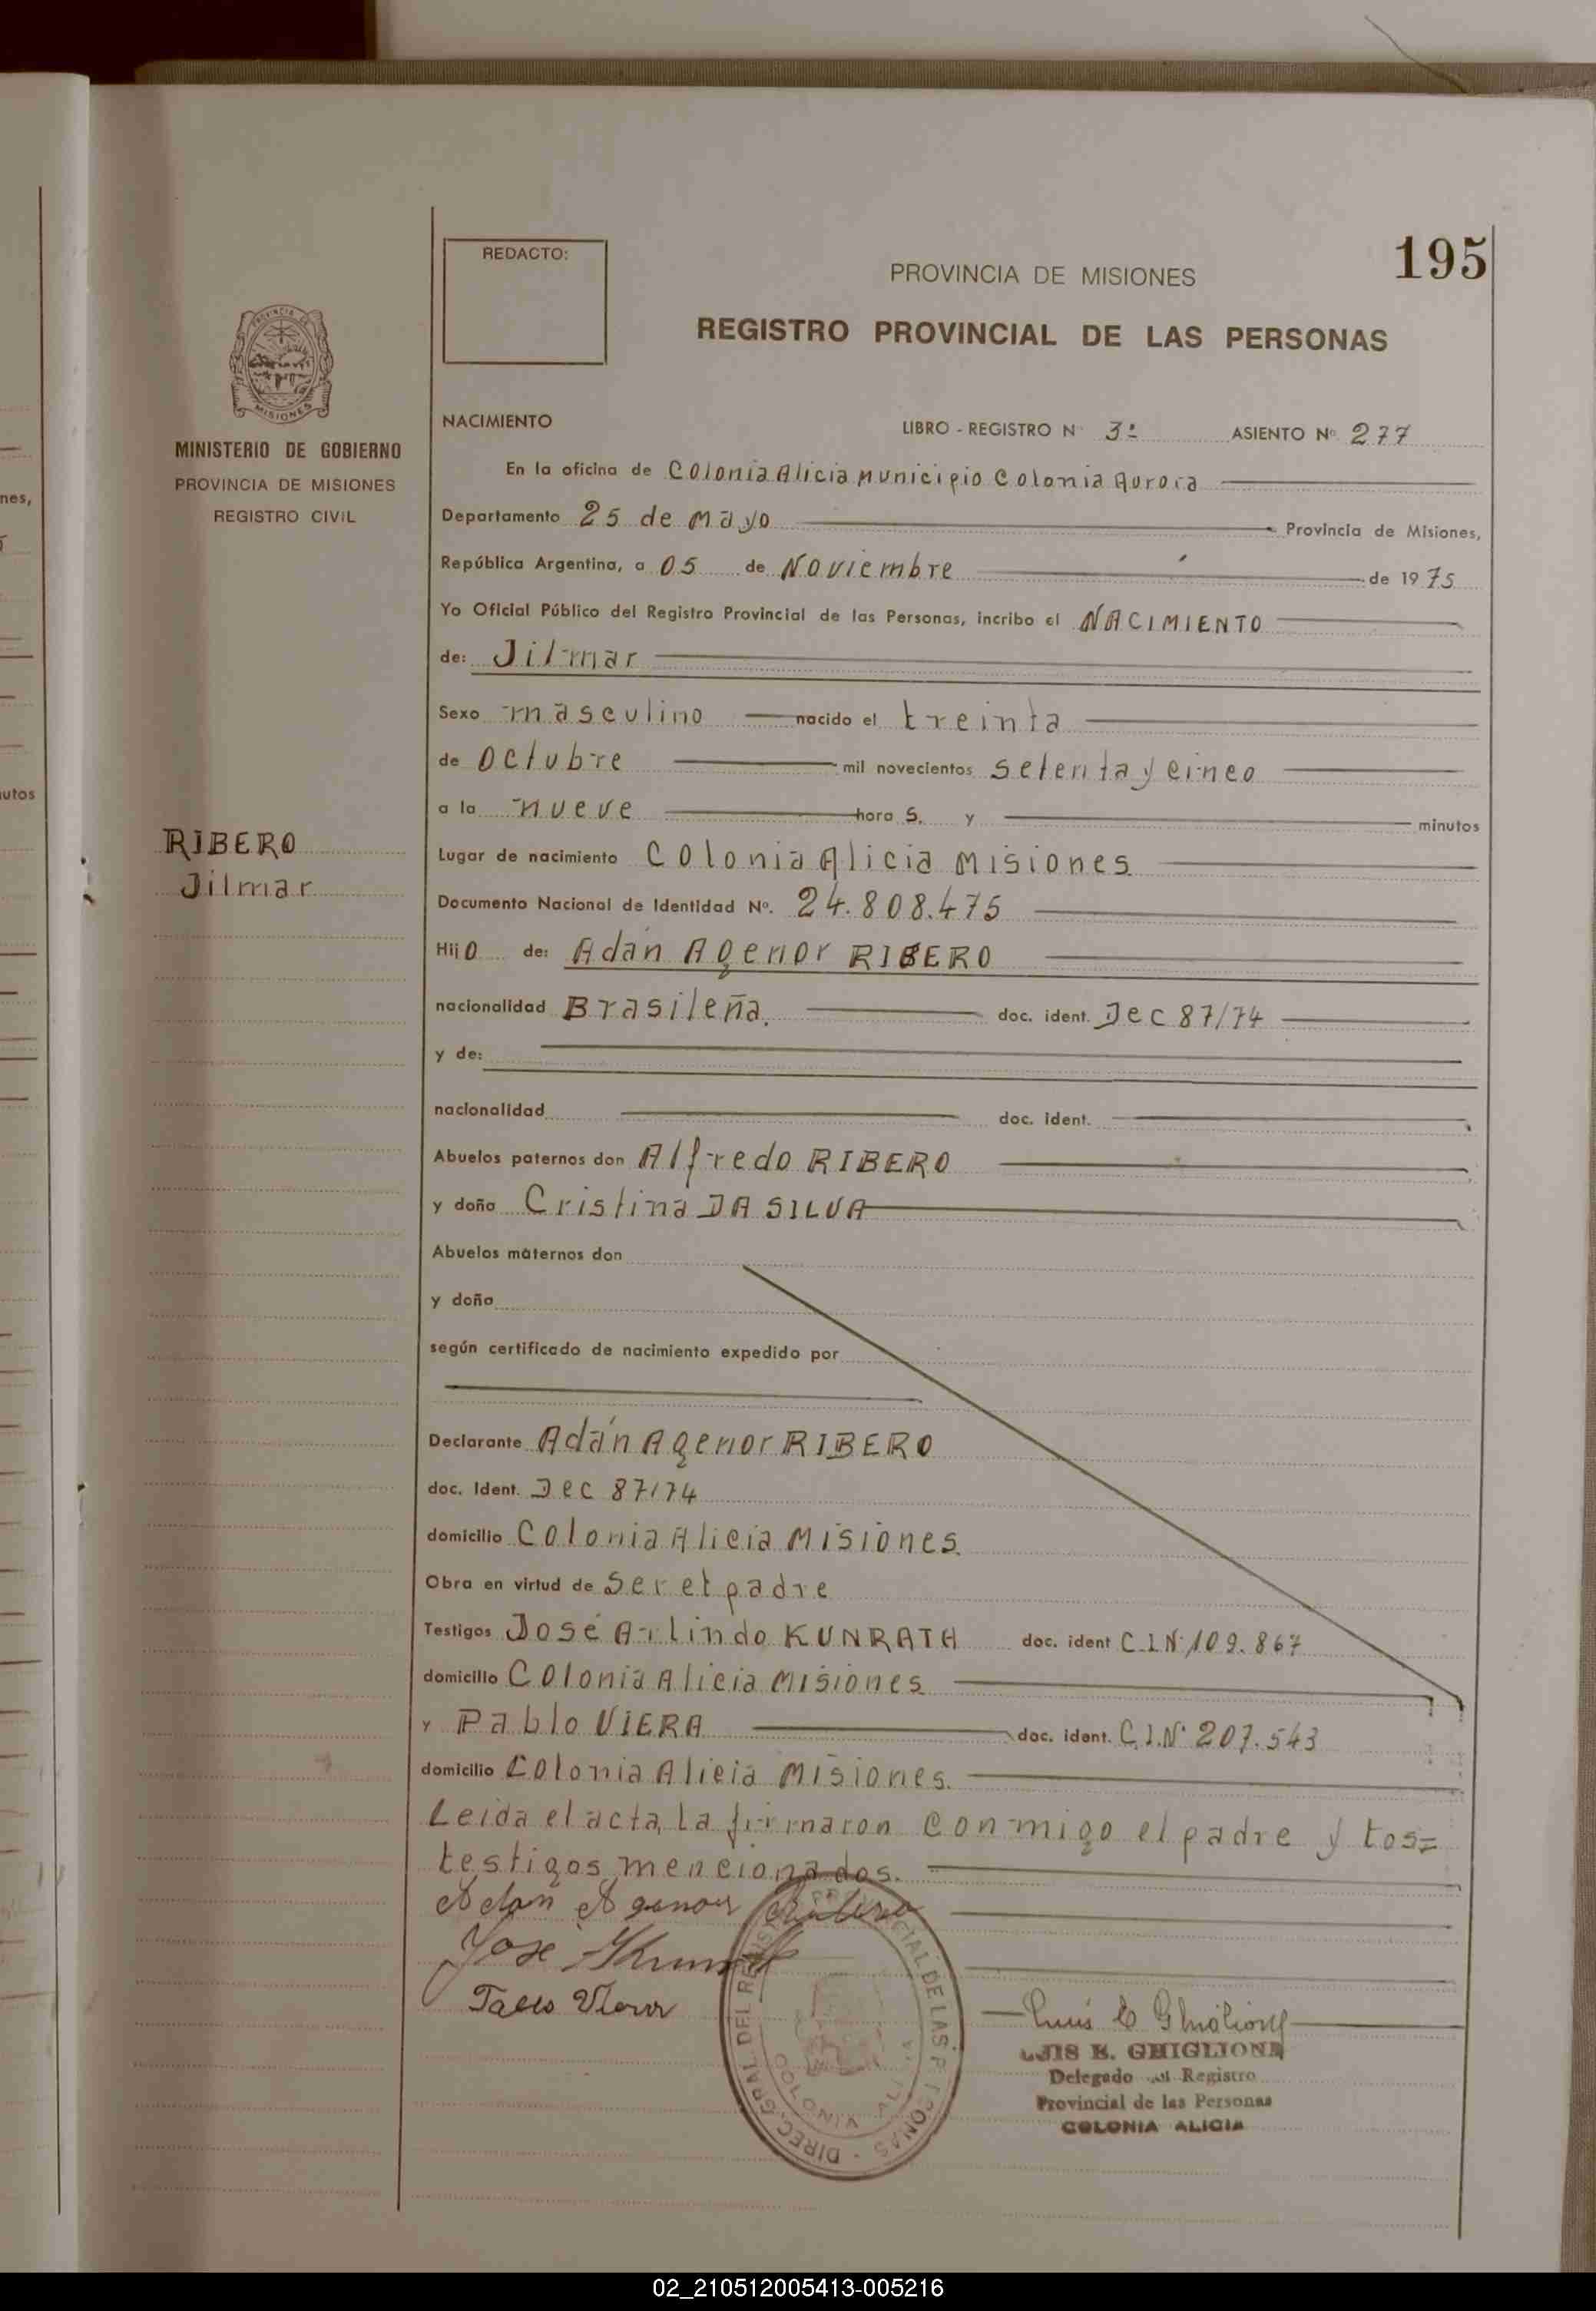 195
REDACTO:
PROVINCIA DE MISIONES
REGISTRO PROVINCIAL DE LAS PERSONAS
MINISTERIO DE GOBIERNO
PROVINCIA DE MISIONES
REGISTRO CIVIL
NACIMIENTO LIBRO - REGISTRO Nº 3º ASIENTO Nº 277
En la oficina de Colonia Alicia Municipio Colonia Aurora
Departamento 25 de Mayo Provincia de Misiones,
República Argentina, a 05 de Noviembre de 1975
Yo Oficial Público del Registro Provincial de las Personas, incribo el NACIMIENTO
de: Jilmar
Sexo masculino nacido el treinta
de Octubre mil novecientos setenta y cinco
a la nueve hora s. y minutos
RIBERO
Jilmar
Lugar de nacimiento Colonia Alicia Misiones
Documento Nacional de Identidad Nº. 24.808.475
Hijo de: Adán Agenor RIBERO
nacionalidad Brasileña. doc. ident. Dec 87/74
y de:
nacionalidad doc. ident.
Abuelos paternos don Alfredo RIBERO
y doña Cristina DA SILVA
Abuelos maternos don
y doña
según certificado de nacimiento expedido por
Declarante Adán Agenor RIBERO
doc. Ident. Dec 87/74
domicilio Colonia Alicia Misiones.
Obra en virtud de ser el padre
Testigos José Arlindo KUNRATH doc. ident C.I.Nº 109.867
domicilio Colonia Alicia Misiones
y Pablo VIERA doc. ident. C.I.Nº 207.543
domicilio Colonia Alicia Misiones.
Leida el acta, la firmaron conmigo el padre y los=
testigos mencionados.
Adan Agenor Ribero
José
Pablo Viera
Luis E Ghiglione
LUIS E. GHIGLIONE
Delegado del Registro
Provincial de las Personas
COLONIA ALICIA
DIREC. GRAL DEL REGISTRO PROVINCIAL DE LAS PERSONAS
COLONIA ALICIA
nes,
utos
02_210512005413-005216